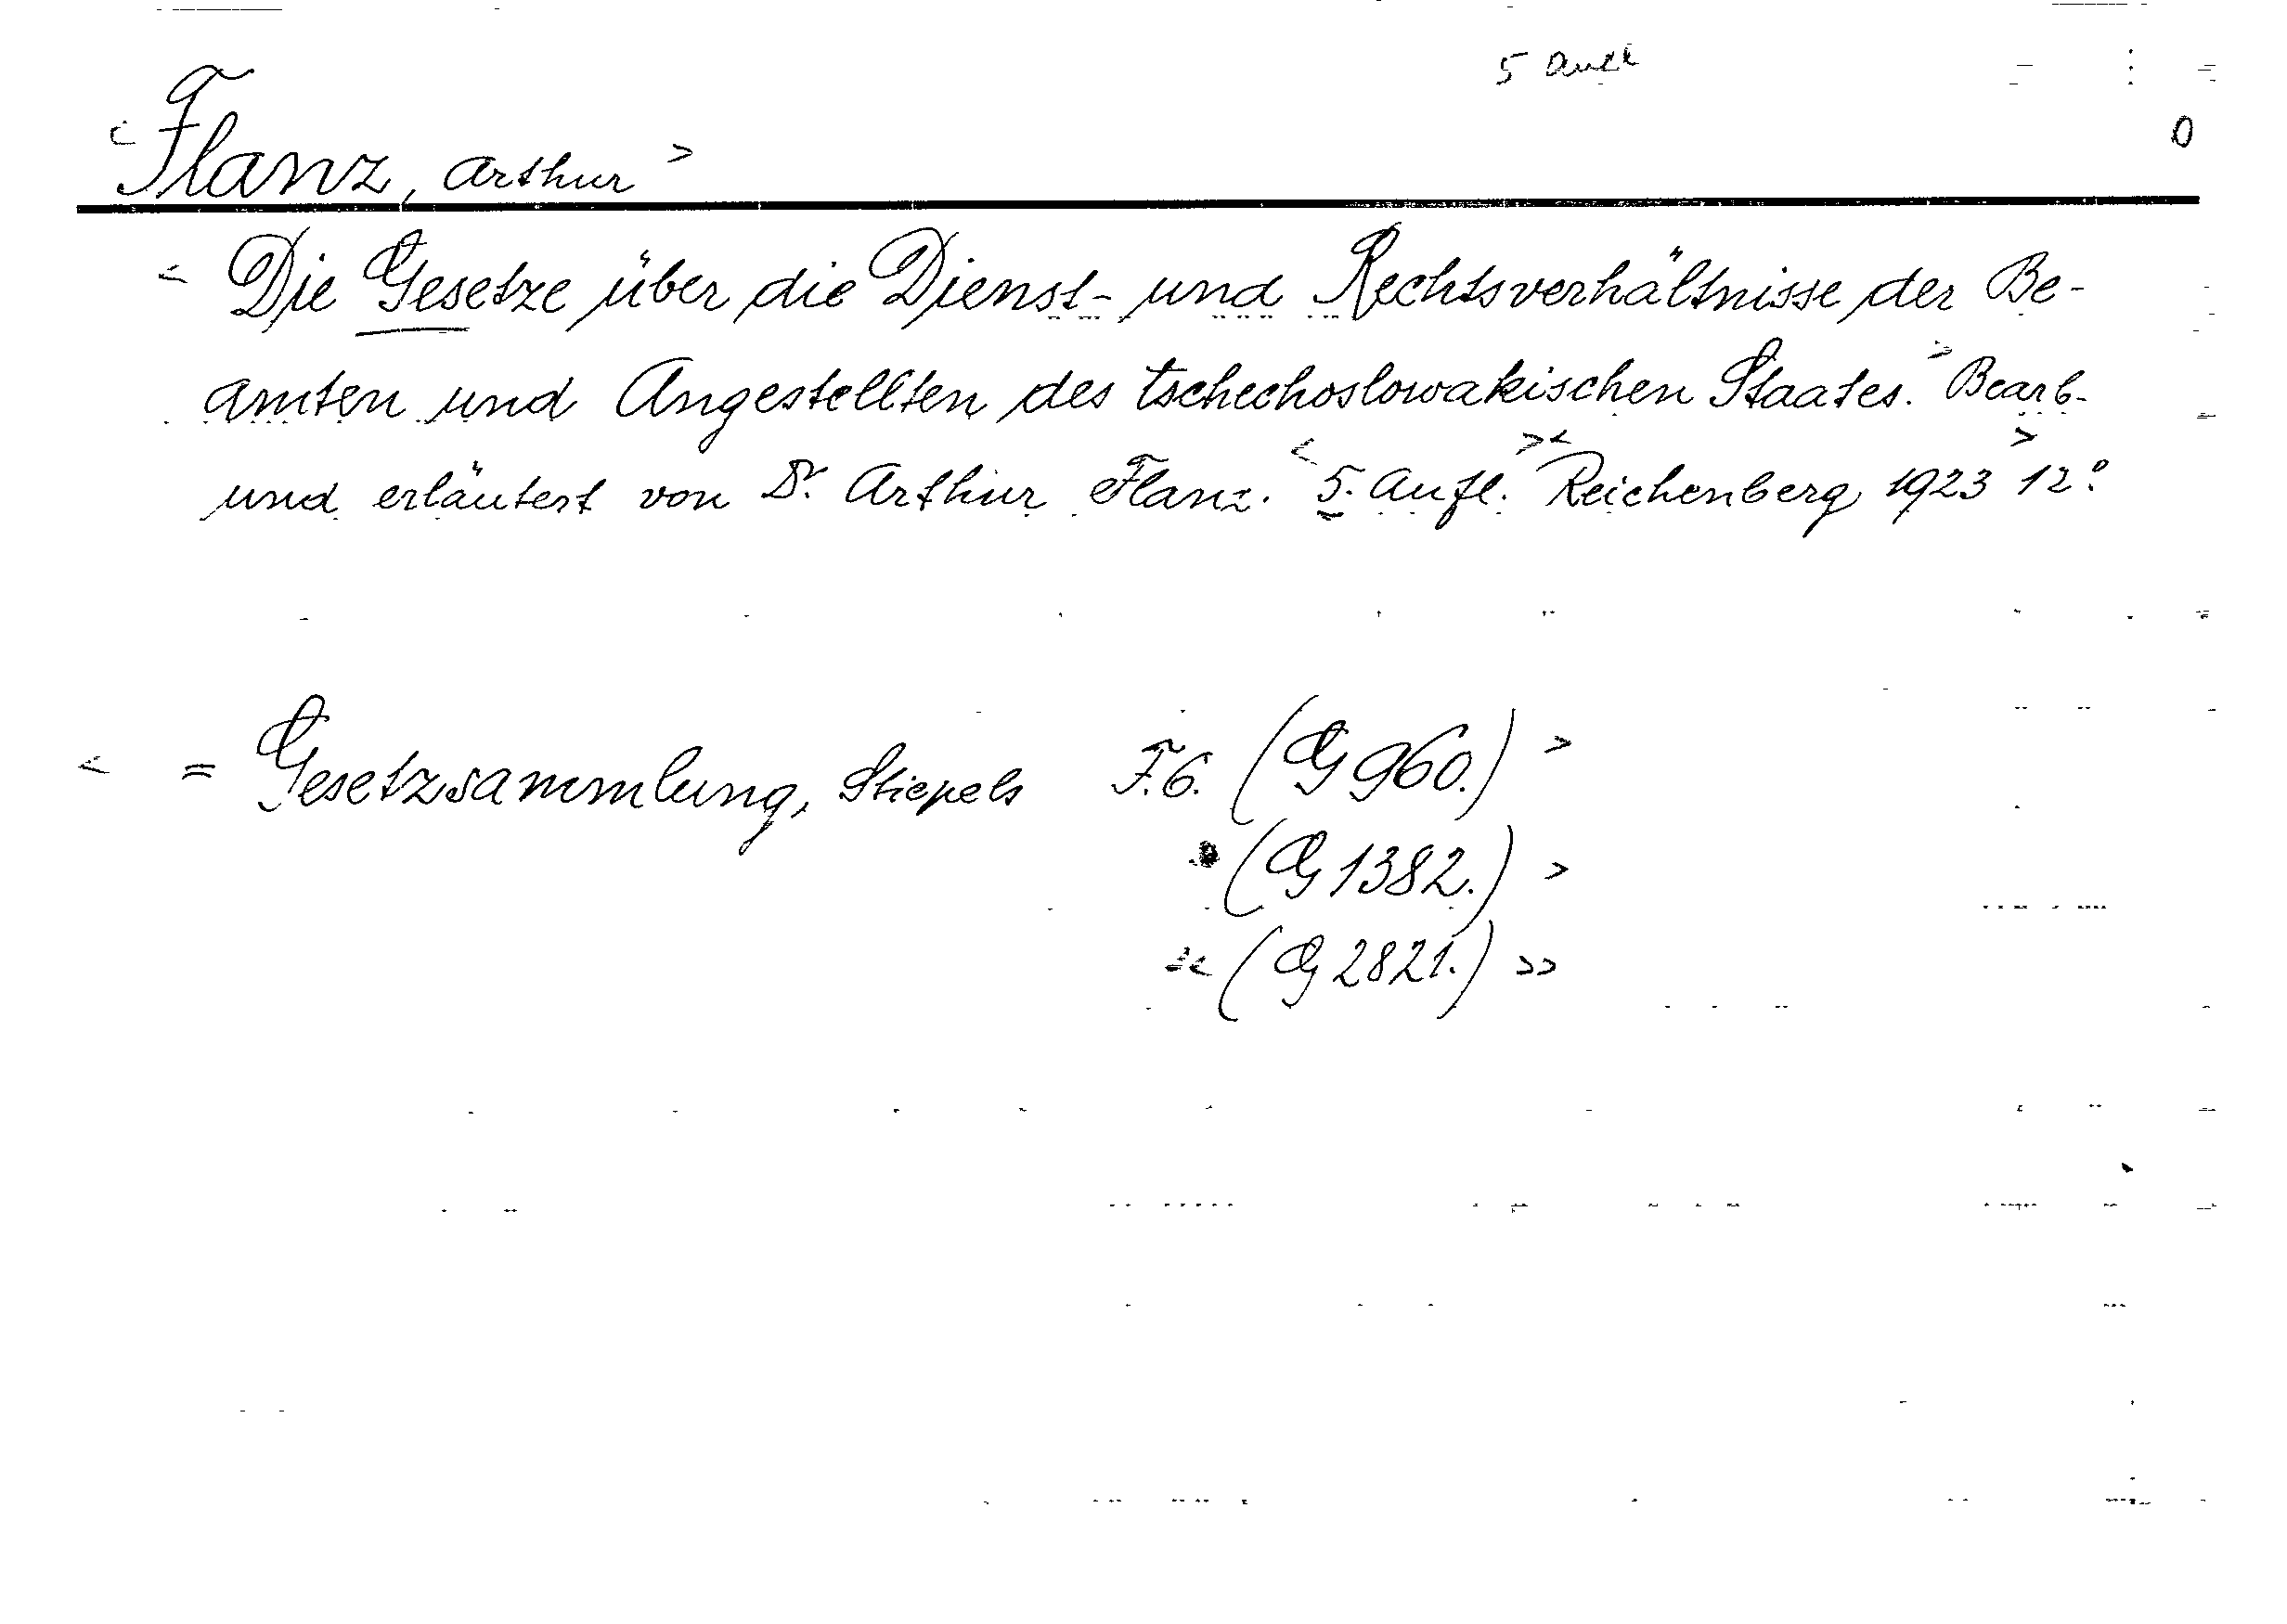 5 Aufl
<Flanz, Arthur> 0
< Die Gesetze über die Dienst- und Rechtsverhältnisse der Be-
amten und Angestellten des tschechoslowakischen Staates.> Bearb.
und erläutert von Dr. Arthur Flanz. <5. Aufl.> <Reichenberg 1923> 12°
< = Gesetzsammlung, Stiepels F.6. (G 960.) >
(G 1382.) >
<< (G 2821.) >>